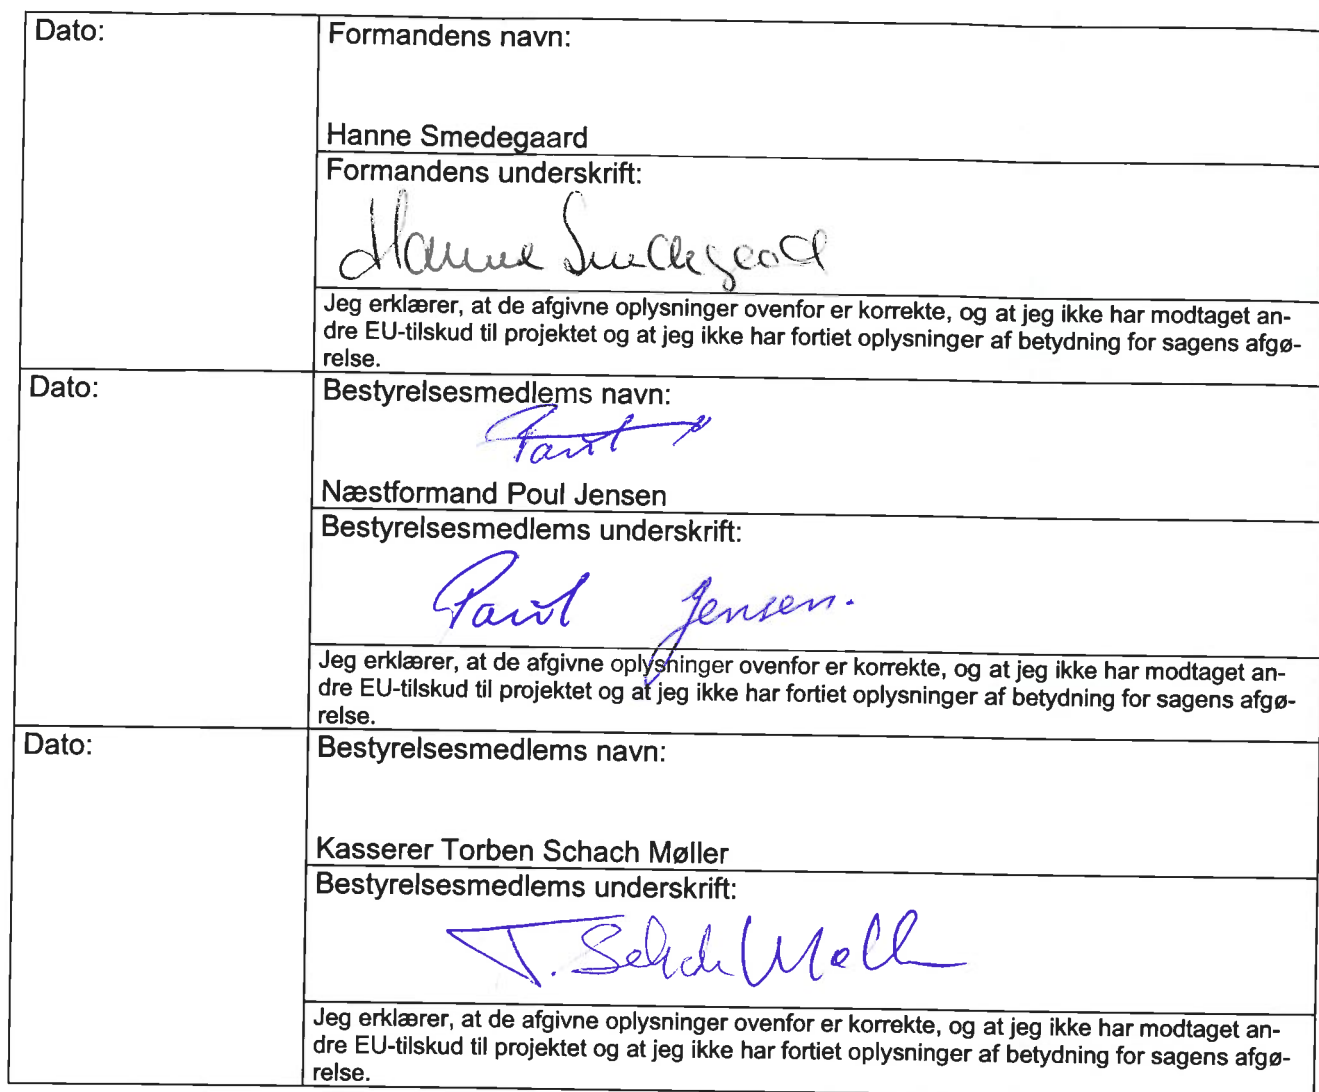 Dato:
Formandens navn:
Hanne Smedegaard
Formandens underskrift:
Hanne Smedegaard
Jeg erklærer, at de afgivne oplysninger ovenfor er korrekte, og at jeg ikke har modtaget an-
dre EU-tilskud til projektet og at jeg ikke har fortiet oplysninger af betydning for sagens afgø-
relse.
Dato:
Bestyrelsesmedlems navn:
Næstformand Poul Jensen
Bestyrelsesmedlems underskrift:
Poul Jensen.
Jeg erklærer, at de afgivne oplysninger ovenfor er korrekte, og at jeg ikke har modtaget an-
dre EU-tilskud til projektet og at jeg ikke har fortiet oplysninger af betydning for sagens afgø-
relse.
Dato:
Bestyrelsesmedlems navn:
Kasserer Torben Schach Møller
Bestyrelsesmedlems underskrift:
T. Schach Møller
Jeg erklærer, at de afgivne oplysninger ovenfor er korrekte, og at jeg ikke har modtaget an-
dre EU-tilskud til projektet og at jeg ikke har fortiet oplysninger af betydning for sagens afgø-
relse.